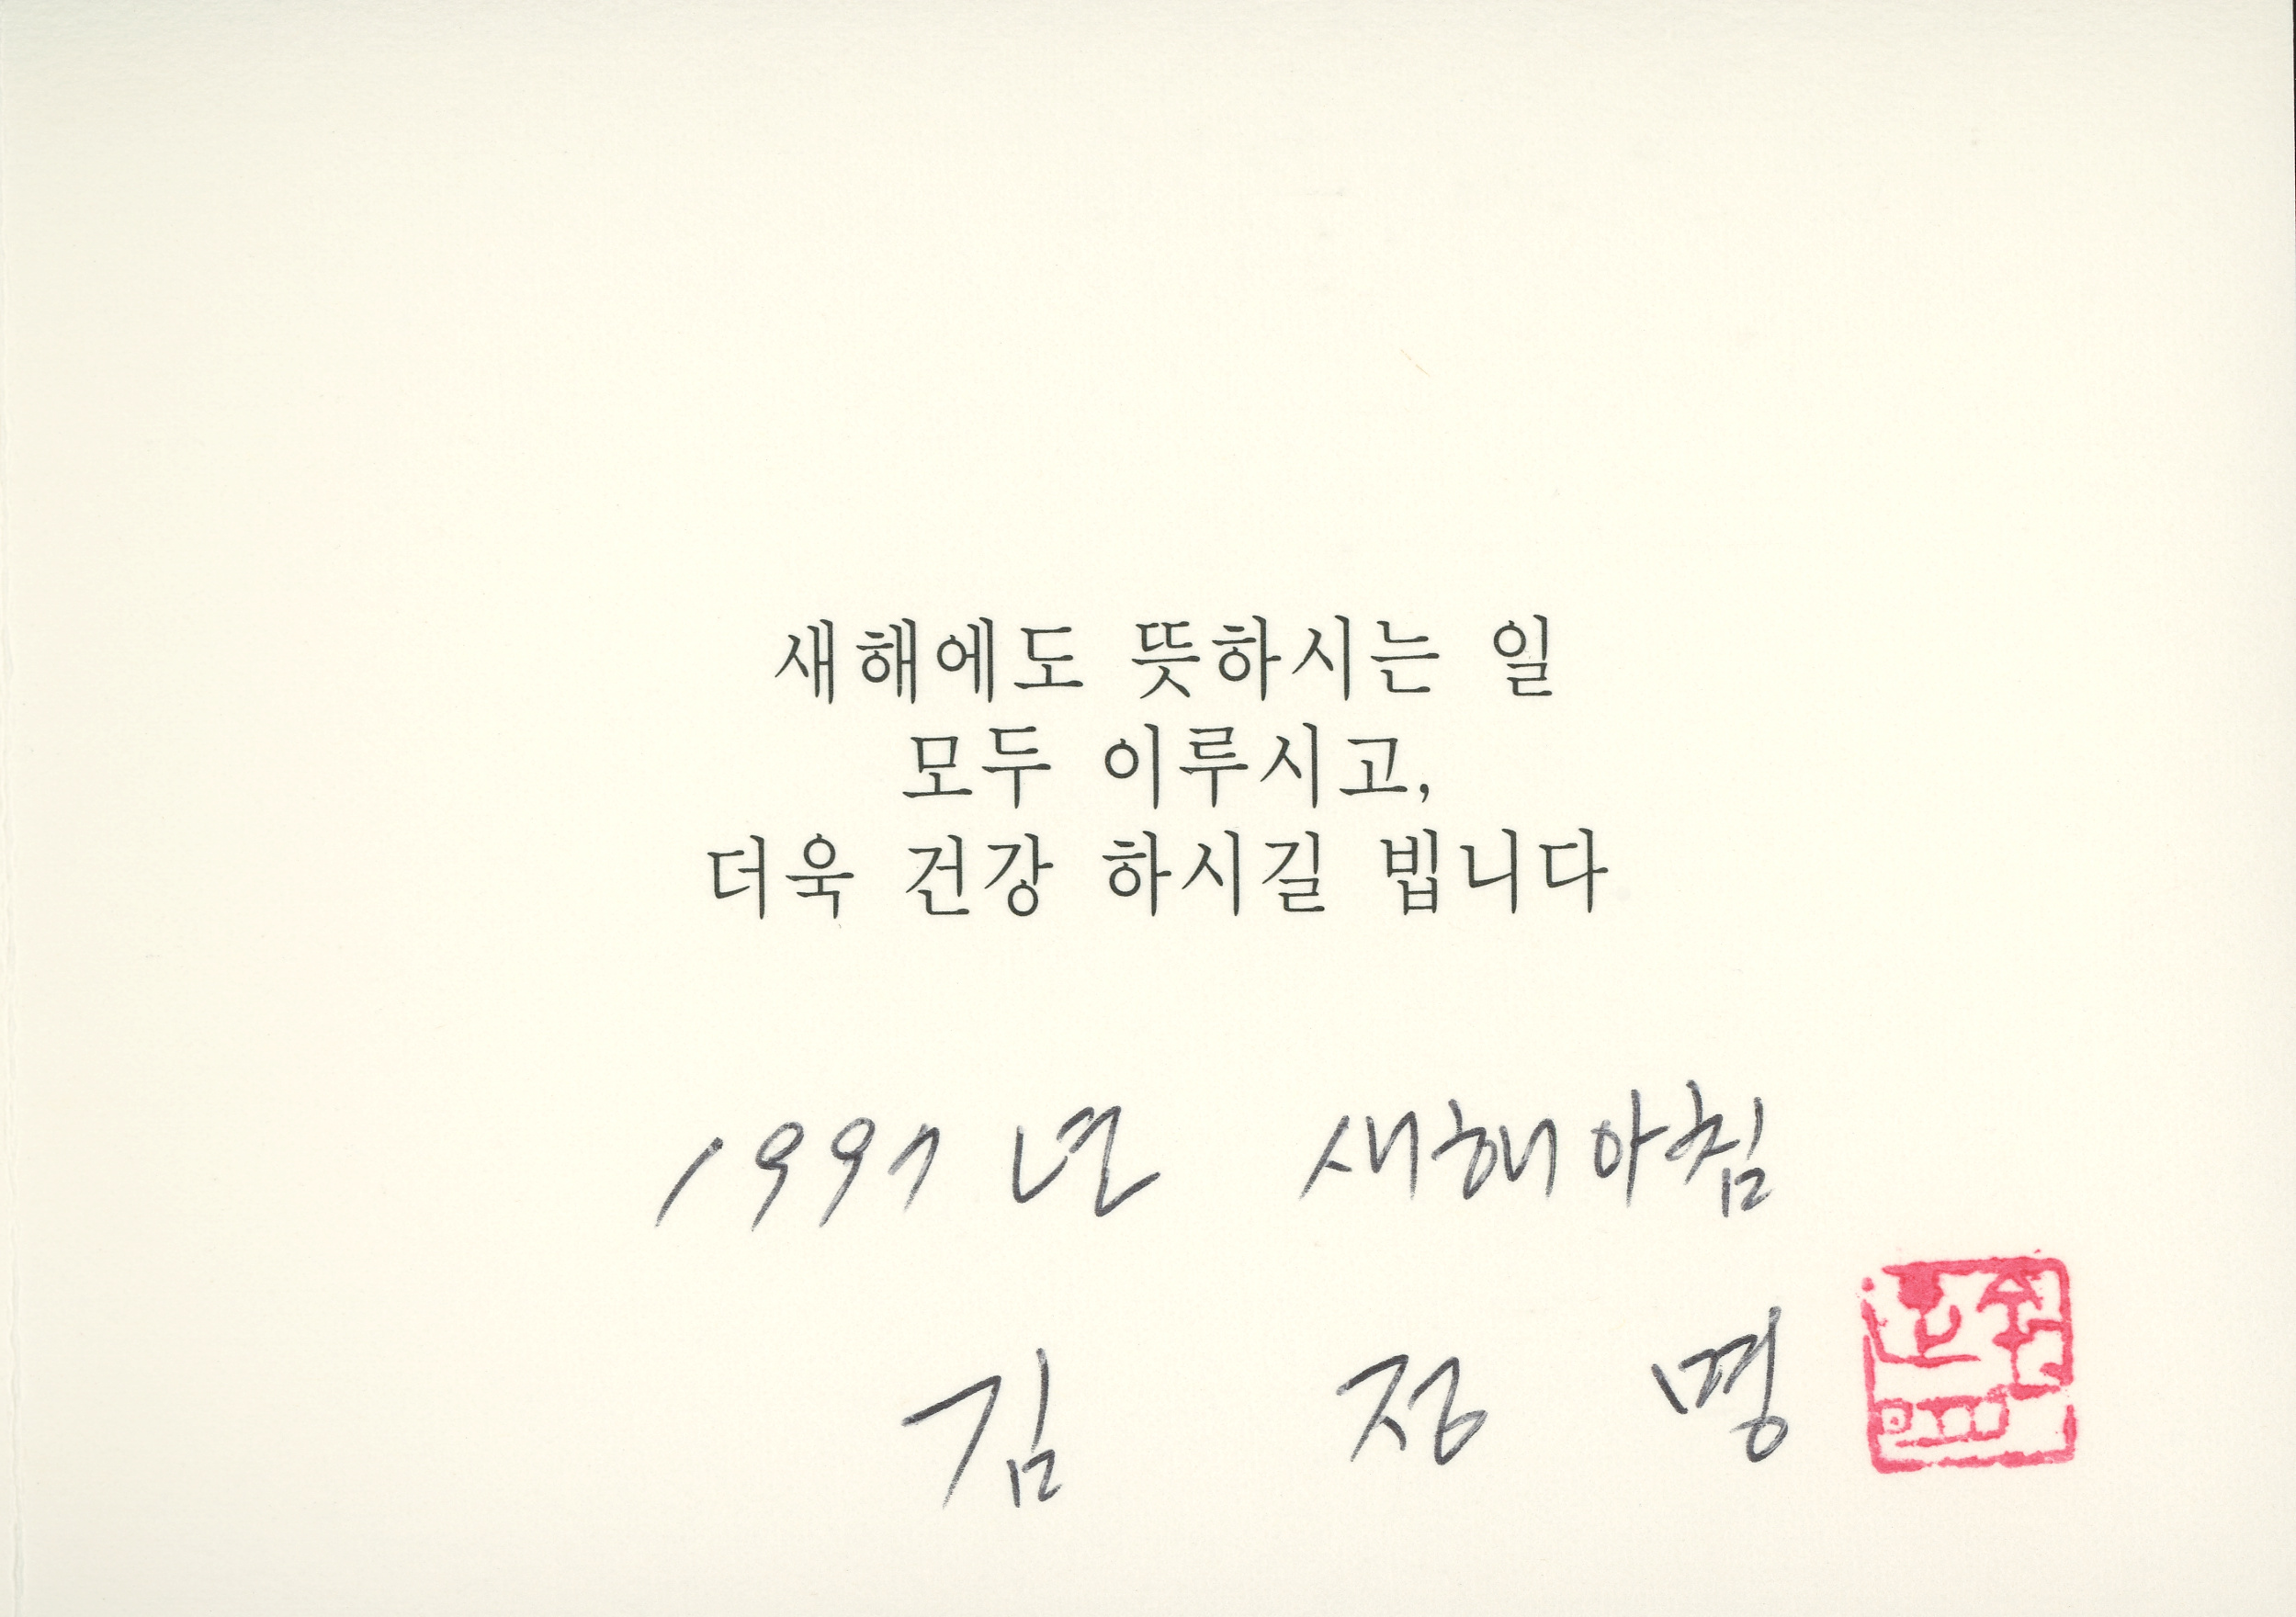 새해에도 뜻하시는 일
모두 이루시고,
더욱 건강 하시길 빕니다
1997년 새해아침
김 정 명